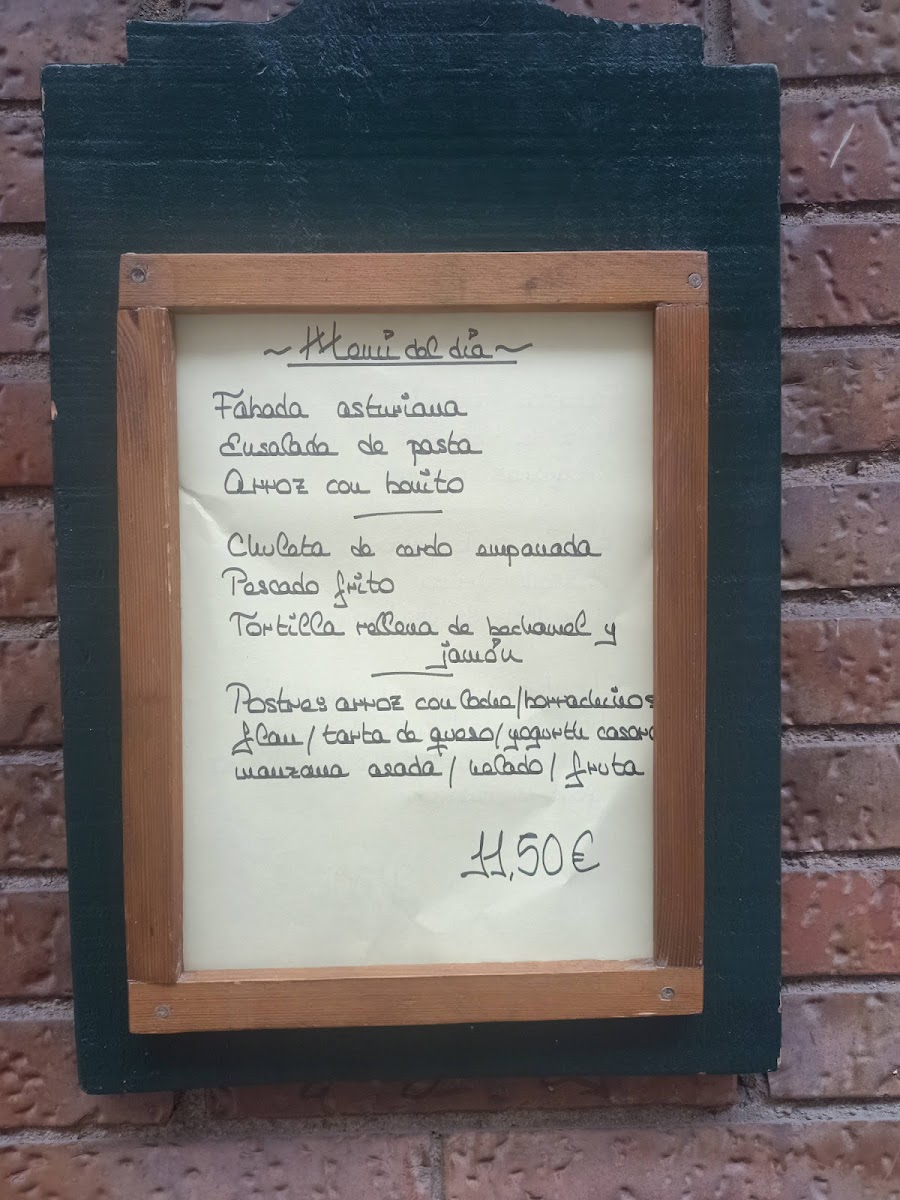 ~ Menú del día ~
Fabada asturiana
Ensalada de pasta
Arroz con bonito
Chuleta de cerdo empanada
Pescado frito
Tortilla rellena de bechamel y
jamón
Postres arroz con leche/borrachinos
flan/tarta de queso/yogurth casero
manzana asada/helado/fruta
11,50€